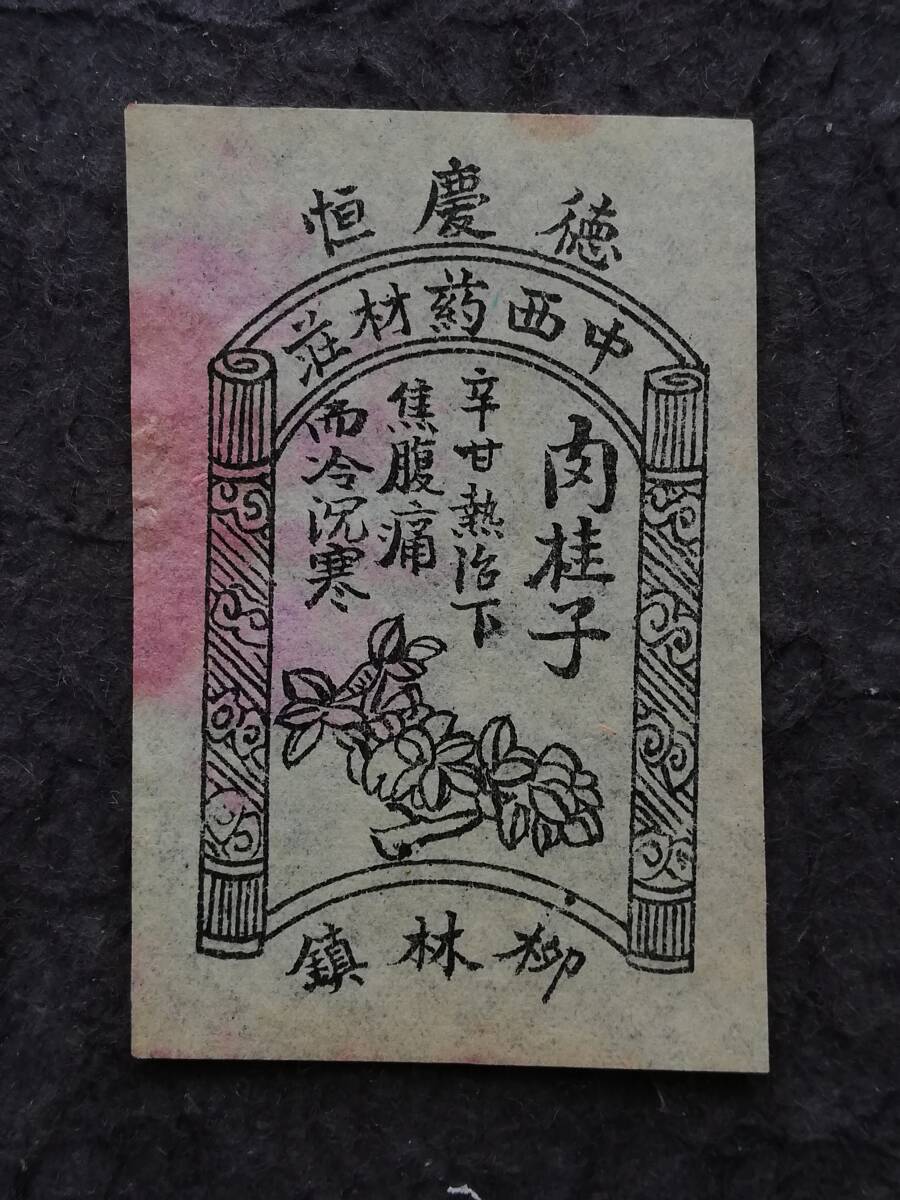 德慶恒
中西葯材莊
肉桂子
辛甘熱治下
焦腹痛
而冷沉寒
柳林鎮